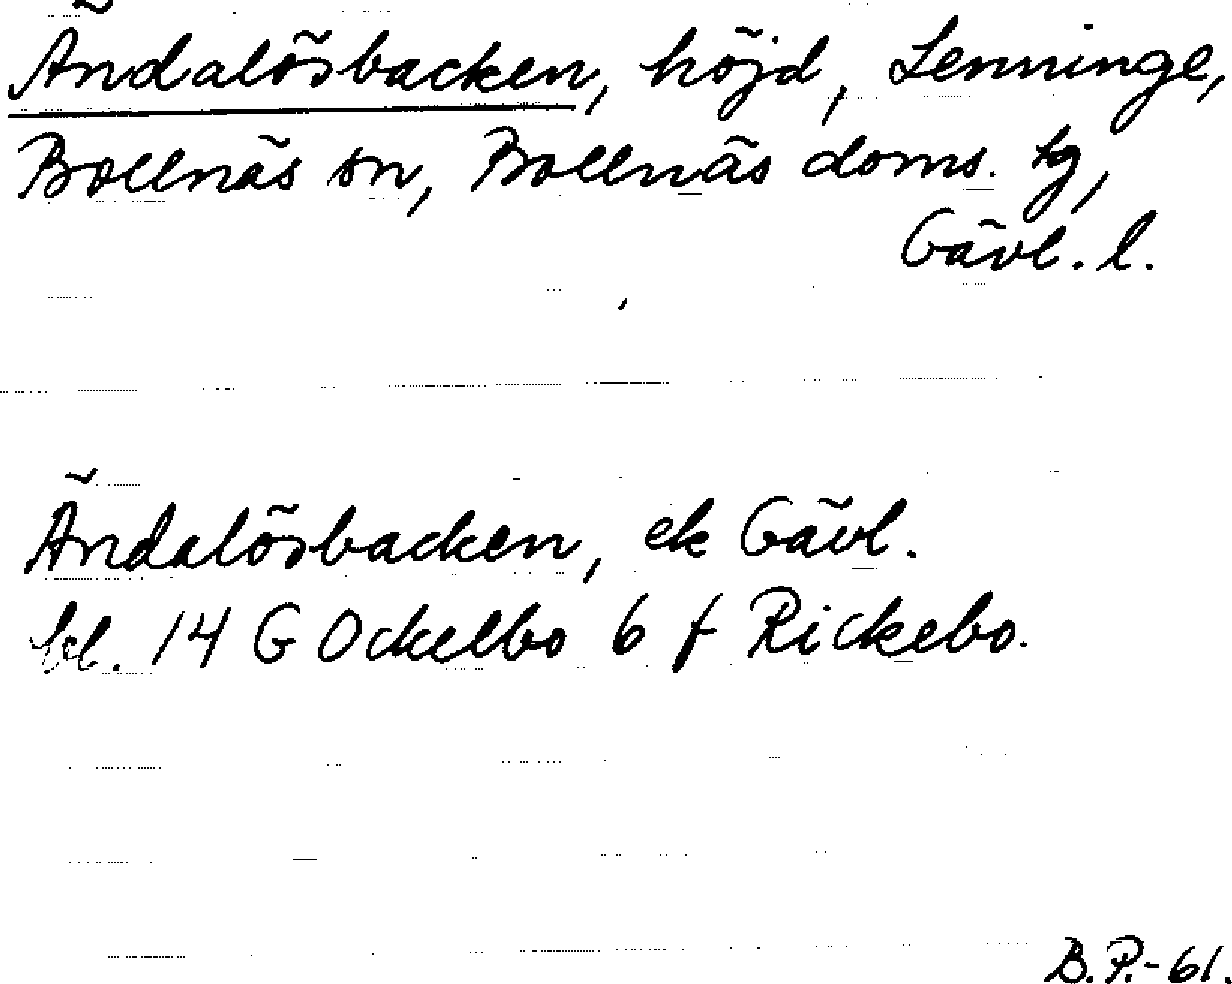 Ändalösbacken, höjd, Lenninge,
Bollnäs sn, Bollnäs doms. tg,
Gävl. l.
Ändalösbacken, ek Gävl.
bl. 14 G Ockelbo 6 f Rickebo.
B.P.-61.